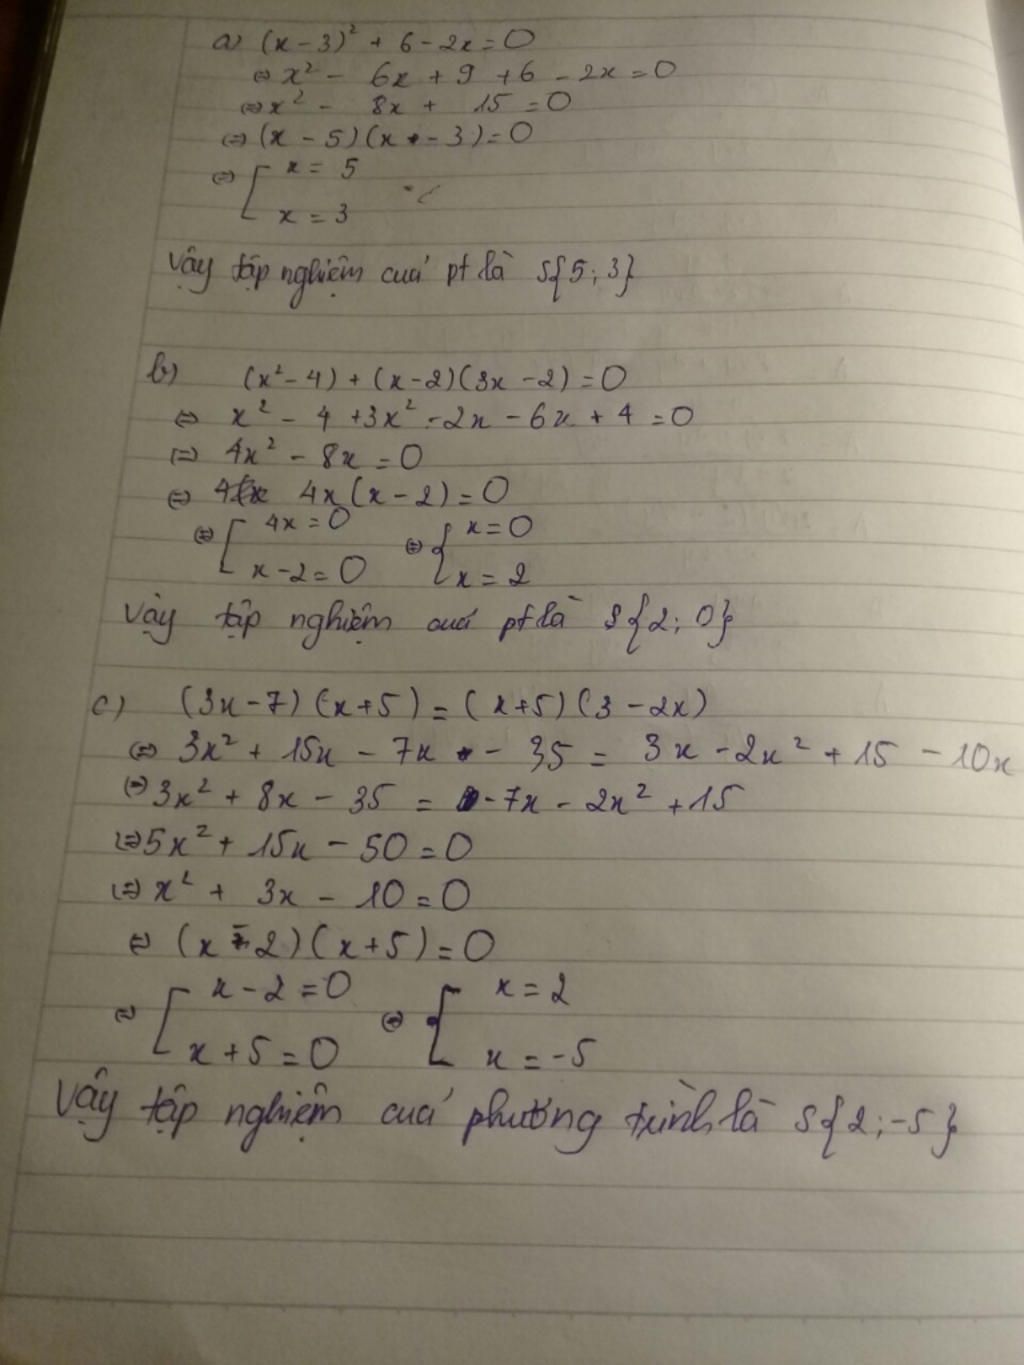 a) (x-3)² + 6 - 2x = 0
⇔ x² - 6x + 9 + 6 - 2x = 0
⇔ x² - 8x + 15 = 0
⇔ (x - 5)(x - 3) = 0
⇔ [ x = 5
x = 3
Vậy tập nghiệm cuả pt là S{5; 3}
b) (x² - 4) + (x - 2)(3x - 2) = 0
⇔ x² - 4 + 3x² - 2x - 6x + 4 = 0
⇔ 4x² - 8x = 0
⇔ 4x(x - 2) = 0
⇔ [ 4x = 0 ⇔ { x = 0
x - 2 = 0 x = 2
Vậy tập nghiệm cuả pt là S{2; 0}
c) (3x - 7)(x + 5) = (x + 5)(3 - 2x)
⇔ 3x² + 15x - 7x - 35 = 3x - 2x² + 15 - 10x
⇔ 3x² + 8x - 35 = -7x - 2x² + 15
⇔ 5x² + 15x - 50 = 0
⇔ x² + 3x - 10 = 0
⇔ (x - 2)(x + 5) = 0
⇔ [ x - 2 = 0 ⇔ [ x = 2
x + 5 = 0 x = -5
Vậy tập nghiệm cuả phương trình là S{2; -5}